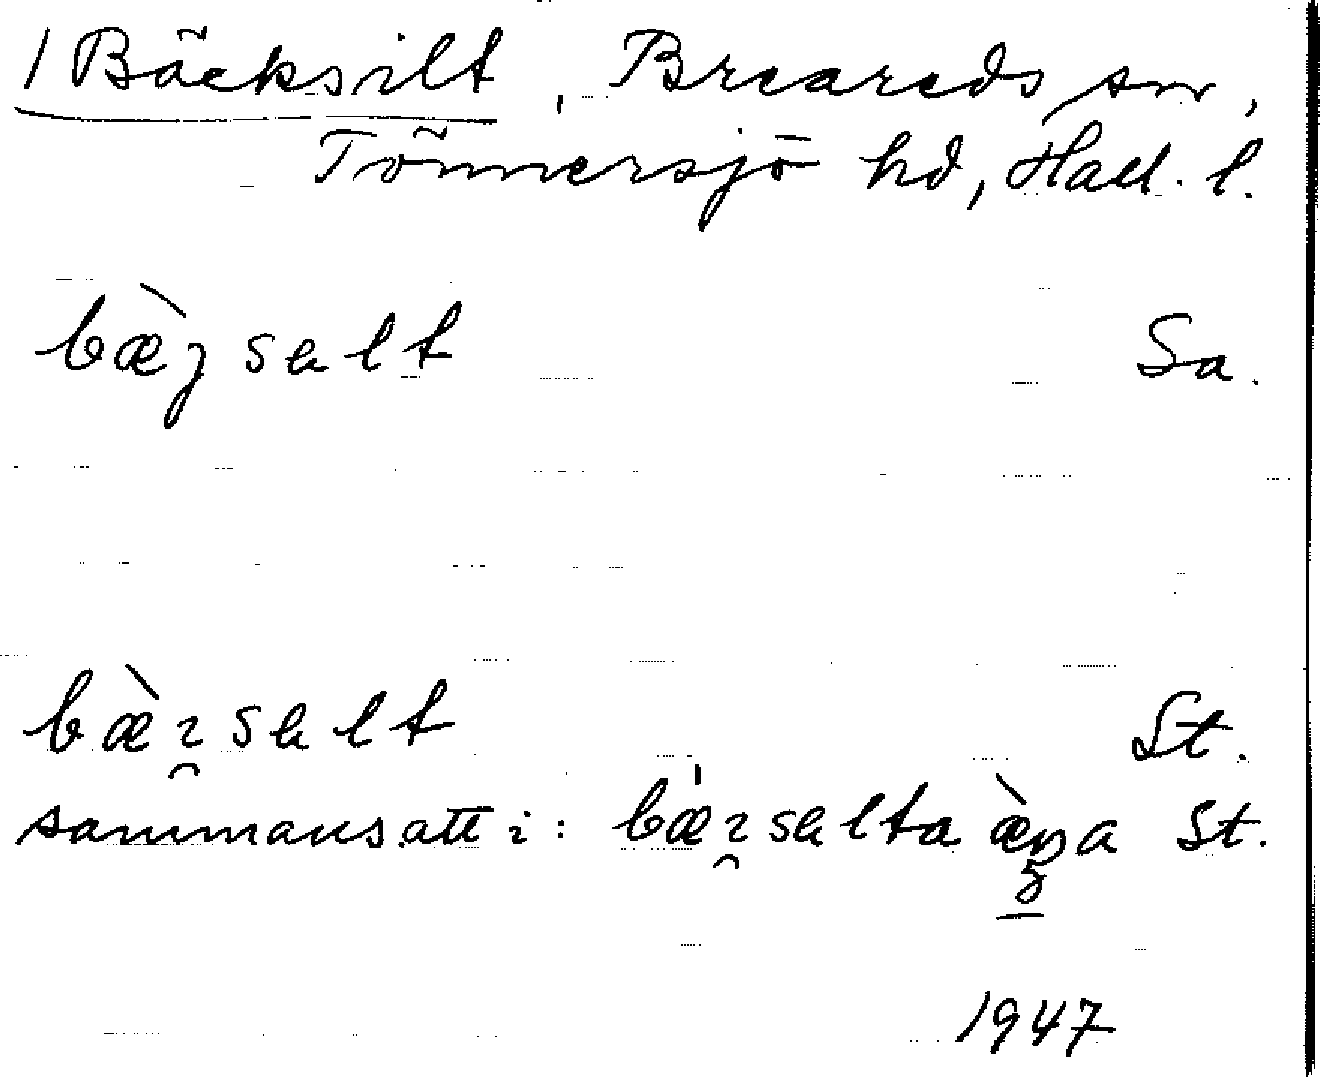 1 Bäcksvilt, Breareds sn,
Tönnersjö hd, Hall. l.
bæ̀ȷsalt Sa.
bæ̀ɪ̯salt St.
sammansatt i: St.
1947